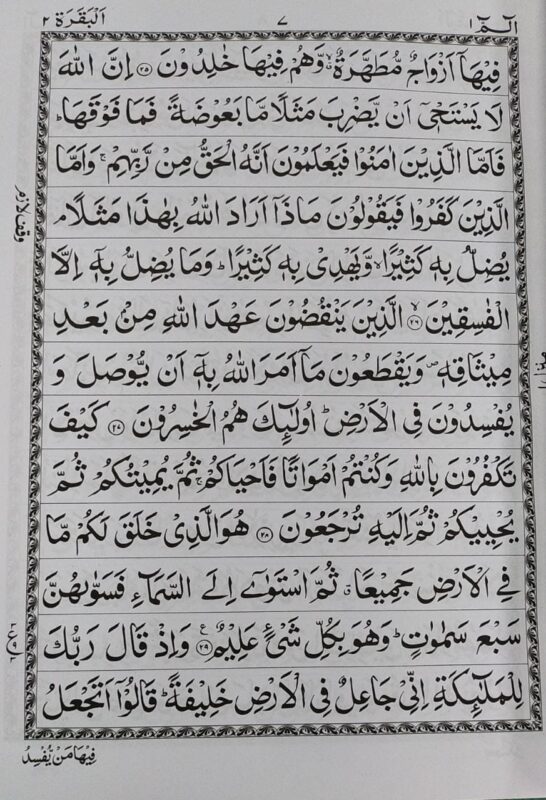 الٓمّٓ ١
٧
اَلْبَقَرَة ٢
فِيْهَاۤ اَزْوَاجٌ مُّطَهَّرَةٌ ۙ وَّهُمْ فِيْهَا خٰلِدُوْنَ ﴿٢٥﴾ اِنَّ اللّٰهَ
لَا يَسْتَحْيٖۤ اَنْ يَّضْرِبَ مَثَلًا مَّا بَعُوْضَةً فَمَا فَوْقَهَا ؕ
فَاَمَّا الَّذِيْنَ اٰمَنُوْا فَيَعْلَمُوْنَ اَنَّهُ الْحَقُّ مِنْ رَّبِّهِمْ ۚ وَاَمَّا
الَّذِيْنَ كَفَرُوْا فَيَقُوْلُوْنَ مَاذَاۤ اَرَادَ اللّٰهُ بِهٰذَا مَثَلًا ۘ
يُضِلُّ بِهٖ كَثِيْرًا ۙ وَّيَهْدِيْ بِهٖ كَثِيْرًا ؕ وَمَا يُضِلُّ بِهٖۤ اِلَّا
الْفٰسِقِيْنَ ۙ ﴿٢٦﴾ الَّذِيْنَ يَنْقُضُوْنَ عَهْدَ اللّٰهِ مِنْۢ بَعْدِ
مِيْثَاقِهٖ ۪ وَيَقْطَعُوْنَ مَاۤ اَمَرَ اللّٰهُ بِهٖۤ اَنْ يُّوْصَلَ وَ
يُفْسِدُوْنَ فِى الْاَرْضِ ؕ اُولٰٓئِكَ هُمُ الْخٰسِرُوْنَ ﴿٢٧﴾ كَيْفَ
تَكْفُرُوْنَ بِاللّٰهِ وَكُنْتُمْ اَمْوَاتًا فَاَحْيَاكُمْ ۚ ثُمَّ يُمِيْتُكُمْ ثُمَّ
يُحْيِيْكُمْ ثُمَّ اِلَيْهِ تُرْجَعُوْنَ ﴿٢٨﴾ هُوَ الَّذِيْ خَلَقَ لَكُمْ مَّا
فِى الْاَرْضِ جَمِيْعًا ۗ ثُمَّ اسْتَوٰۤى اِلَى السَّمَآءِ فَسَوّٰىهُنَّ
سَبْعَ سَمٰوٰتٍ ؕ وَهُوَ بِكُلِّ شَيْءٍ عَلِيْمٌ ﴿٢٩﴾ وَاِذْ قَالَ رَبُّكَ
لِلْمَلٰٓئِكَةِ اِنِّيْ جَاعِلٌ فِى الْاَرْضِ خَلِيْفَةً ؕ قَالُوْۤا اَتَجْعَلُ
وقف لازم
فِيْهَا مَنْ يُّفْسِدُ